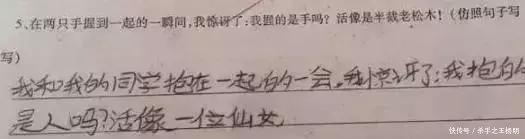 5、在两只手握到一起的一瞬间,我惊讶了:我握的是手吗？活像是半截老松木！(仿照句子写
写)
我和我的同学抱在一起的一会,我惊讶了:我抱的
是人吗?活像一位仙女
快传号/杀手之王楼明